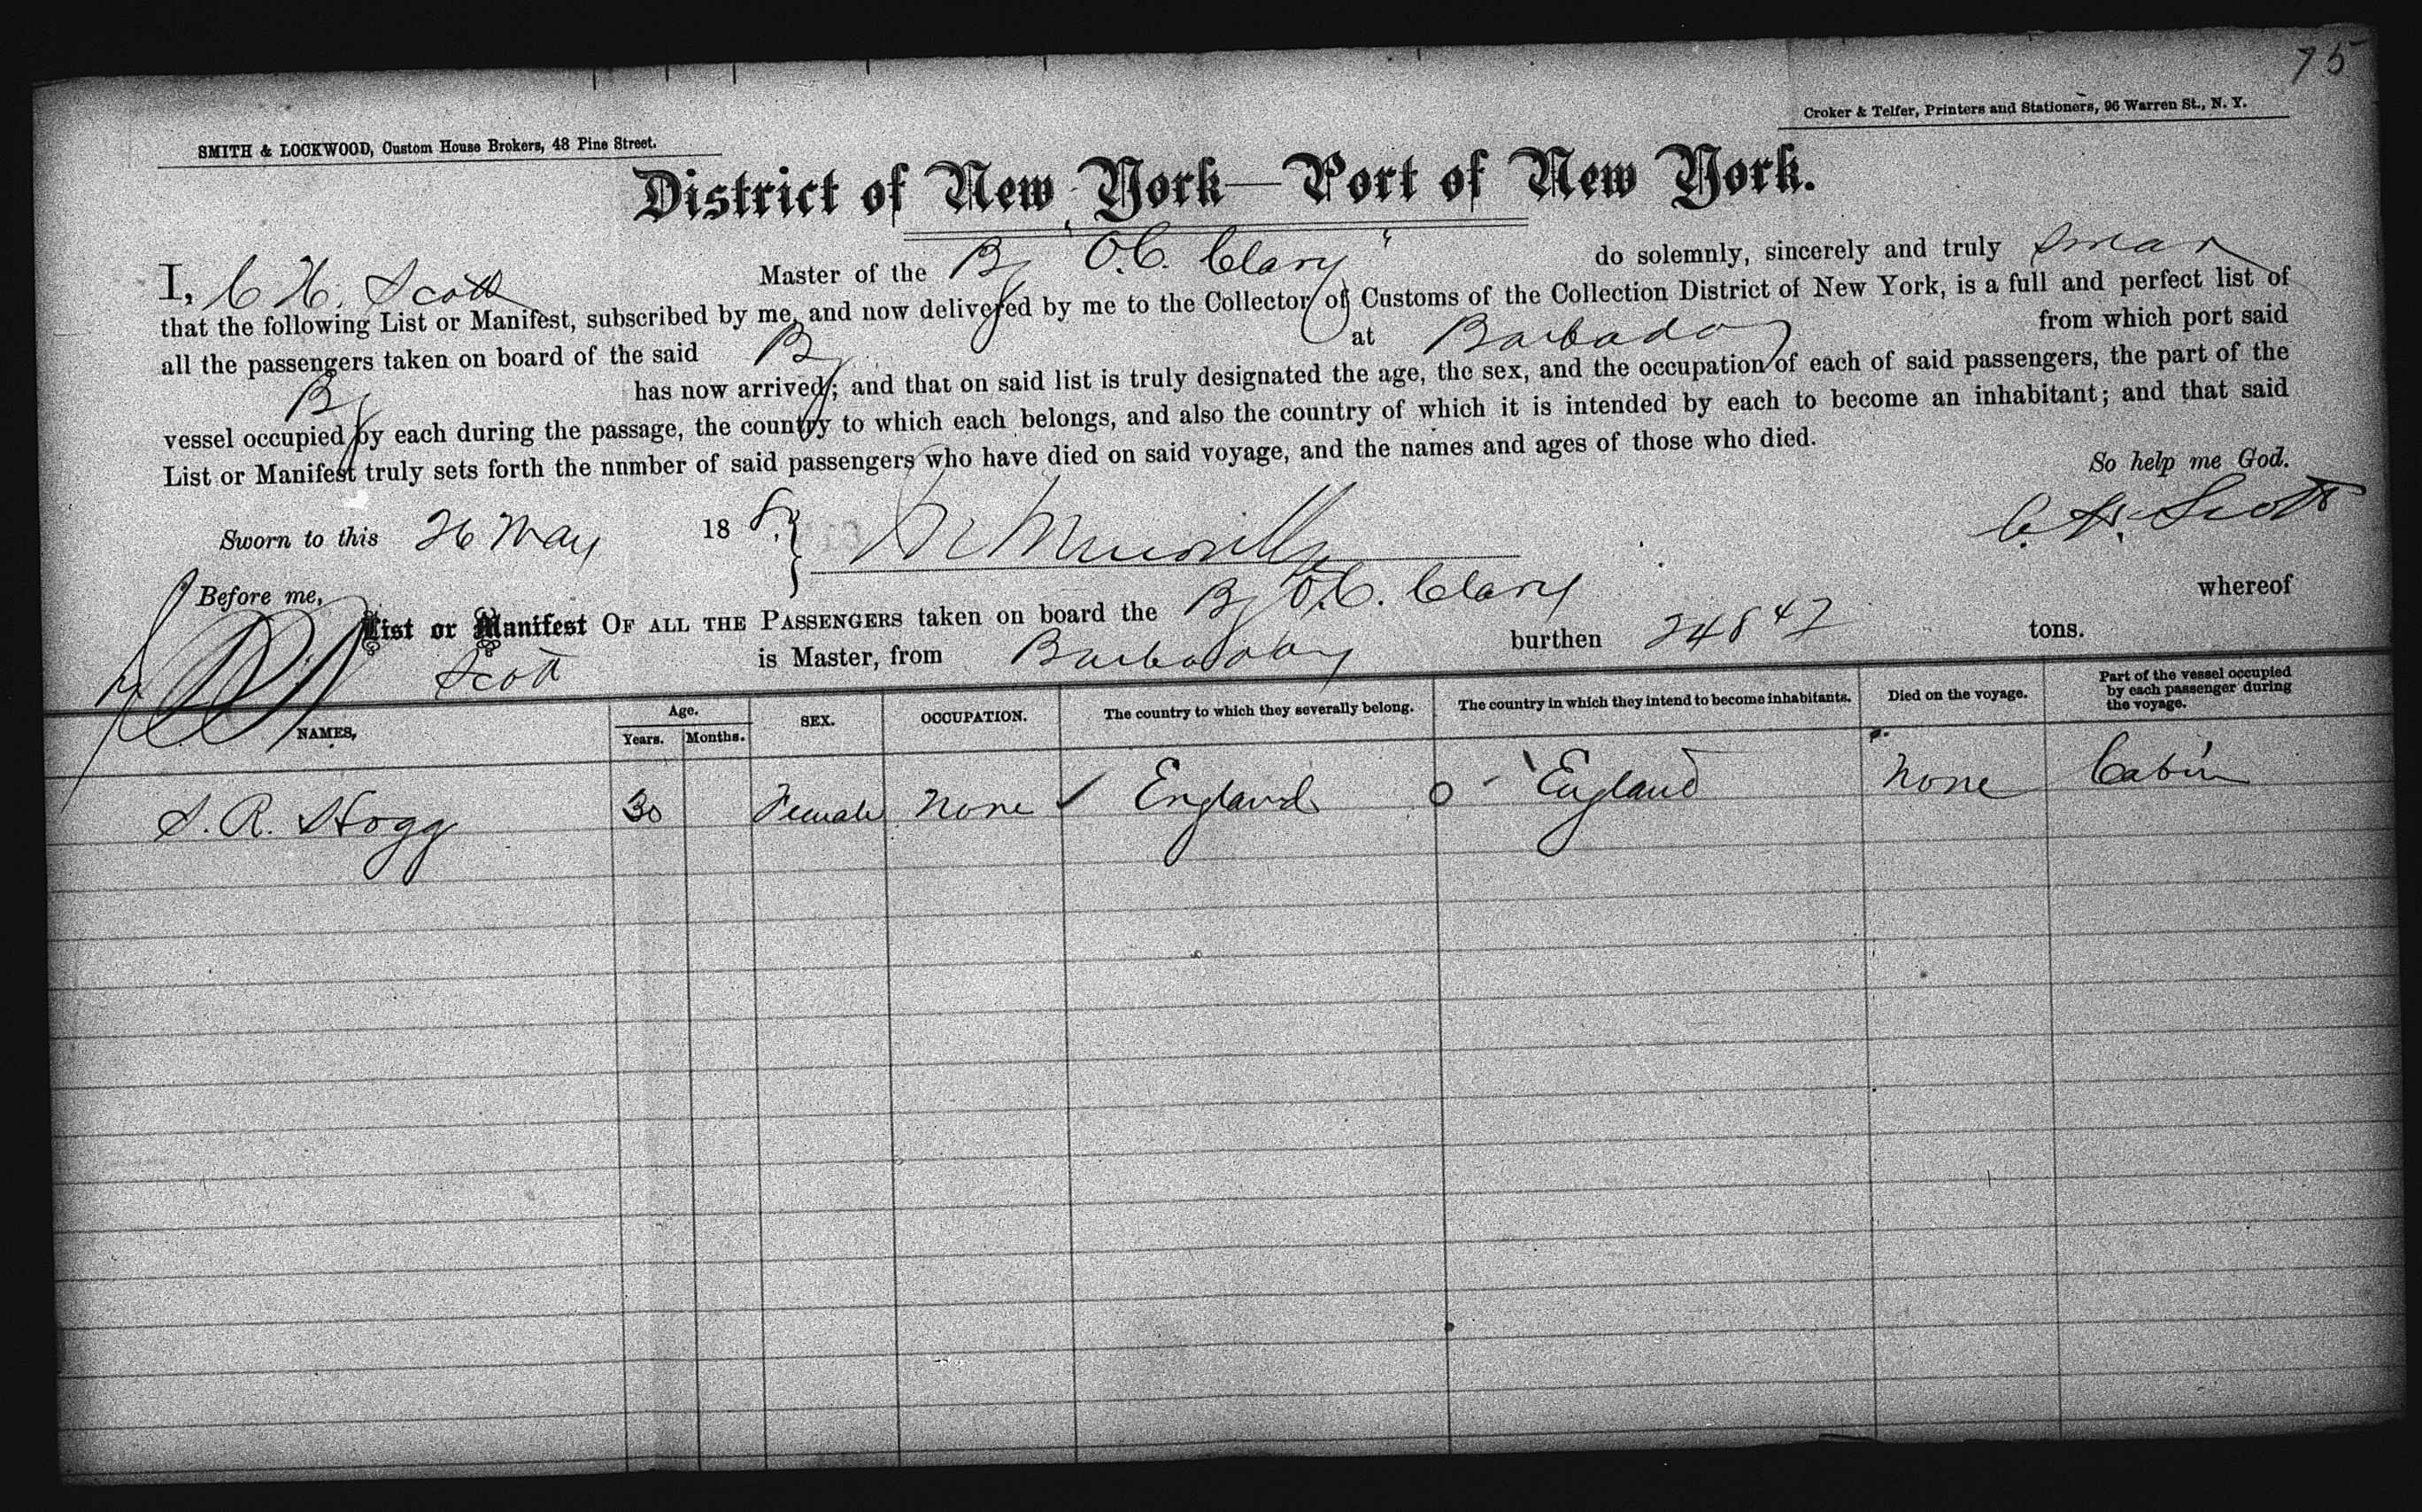 75
SMITH & LOCKWOOD, Custom House Brokers, 48 Pine Street.
Croker & Telfer, Printers and Stationers, 96 Warren St., N. Y.
District of New York—Port of New York.
I, C H. Scott Master of the Bg "O.C. Clary" do solemnly, sincerely and truly swear
that the following List or Manifest, subscribed by me, and now delivered by me to the Collector of Customs of the Collection District of New York, is a full and perfect list of
all the passengers taken on board of the said Bg at Barbados from which port said
Bg has now arrived; and that on said list is truly designated the age, the sex, and the occupation of each of said passengers, the part of the
vessel occupied by each during the passage, the country to which each belongs, and also the country of which it is intended by each to become an inhabitant; and that said
List or Manifest truly sets forth the nnmber of said passengers who have died on said voyage, and the names and ages of those who died.
So help me God.
Sworn to this 26 May 188 C. H. Scott
Before me,
List or Manifest OF ALL THE PASSENGERS taken on board the Bg O.C. Clary whereof
Scott is Master, from Barbados burthen 248 47 tons.
NAMES, Age. Years. Months. SEX. OCCUPATION. The country to which they severally belong. The country in which they intend to become inhabitants. Died on the voyage. Part of the vessel occupied by each passenger during the voyage.
S. R. Hogg 30 Female None ✓ England O - England None Cabin